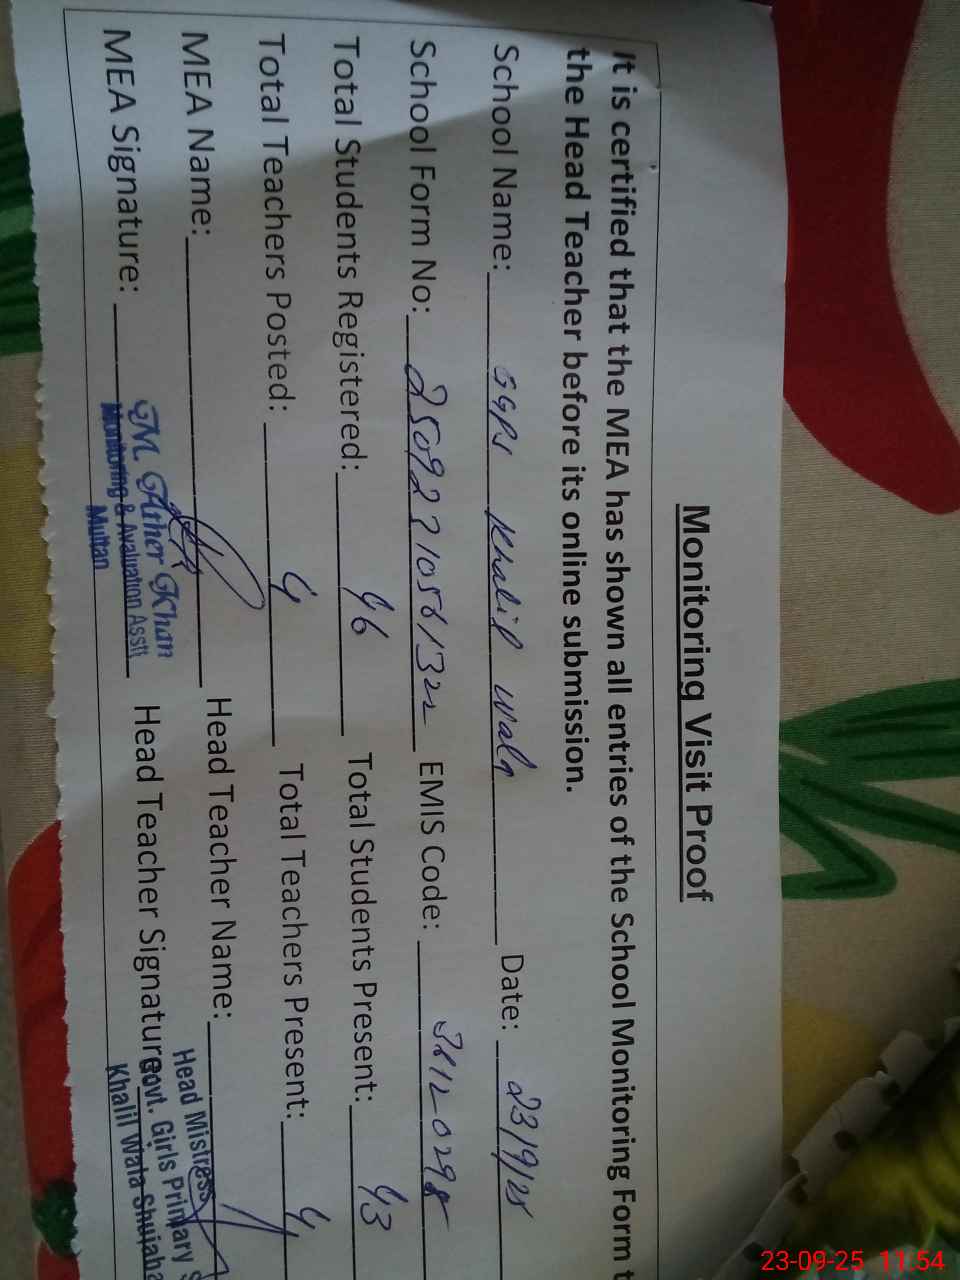 Monitoring Visit Proof
It is certified that the MEA has shown all entries of the School Monitoring Form t
the Head Teacher before its online submission.
School Name: GGPS Khalil Wala Date: 23/9/25
School Form No: EMIS Code:
Total Students Registered: 46 Total Students Present: 43
Total Teachers Posted: 4 Total Teachers Present: 4
MEA Name: Head Teacher Name:
MEA Signature: Head Teacher Signature:
M. Ather Khan
Monitoring & Avaluation Asstt
Multan
Head Mistress
Govt. Girls Primary S
Khalil Wala Shujaba
23-09-25 11:54